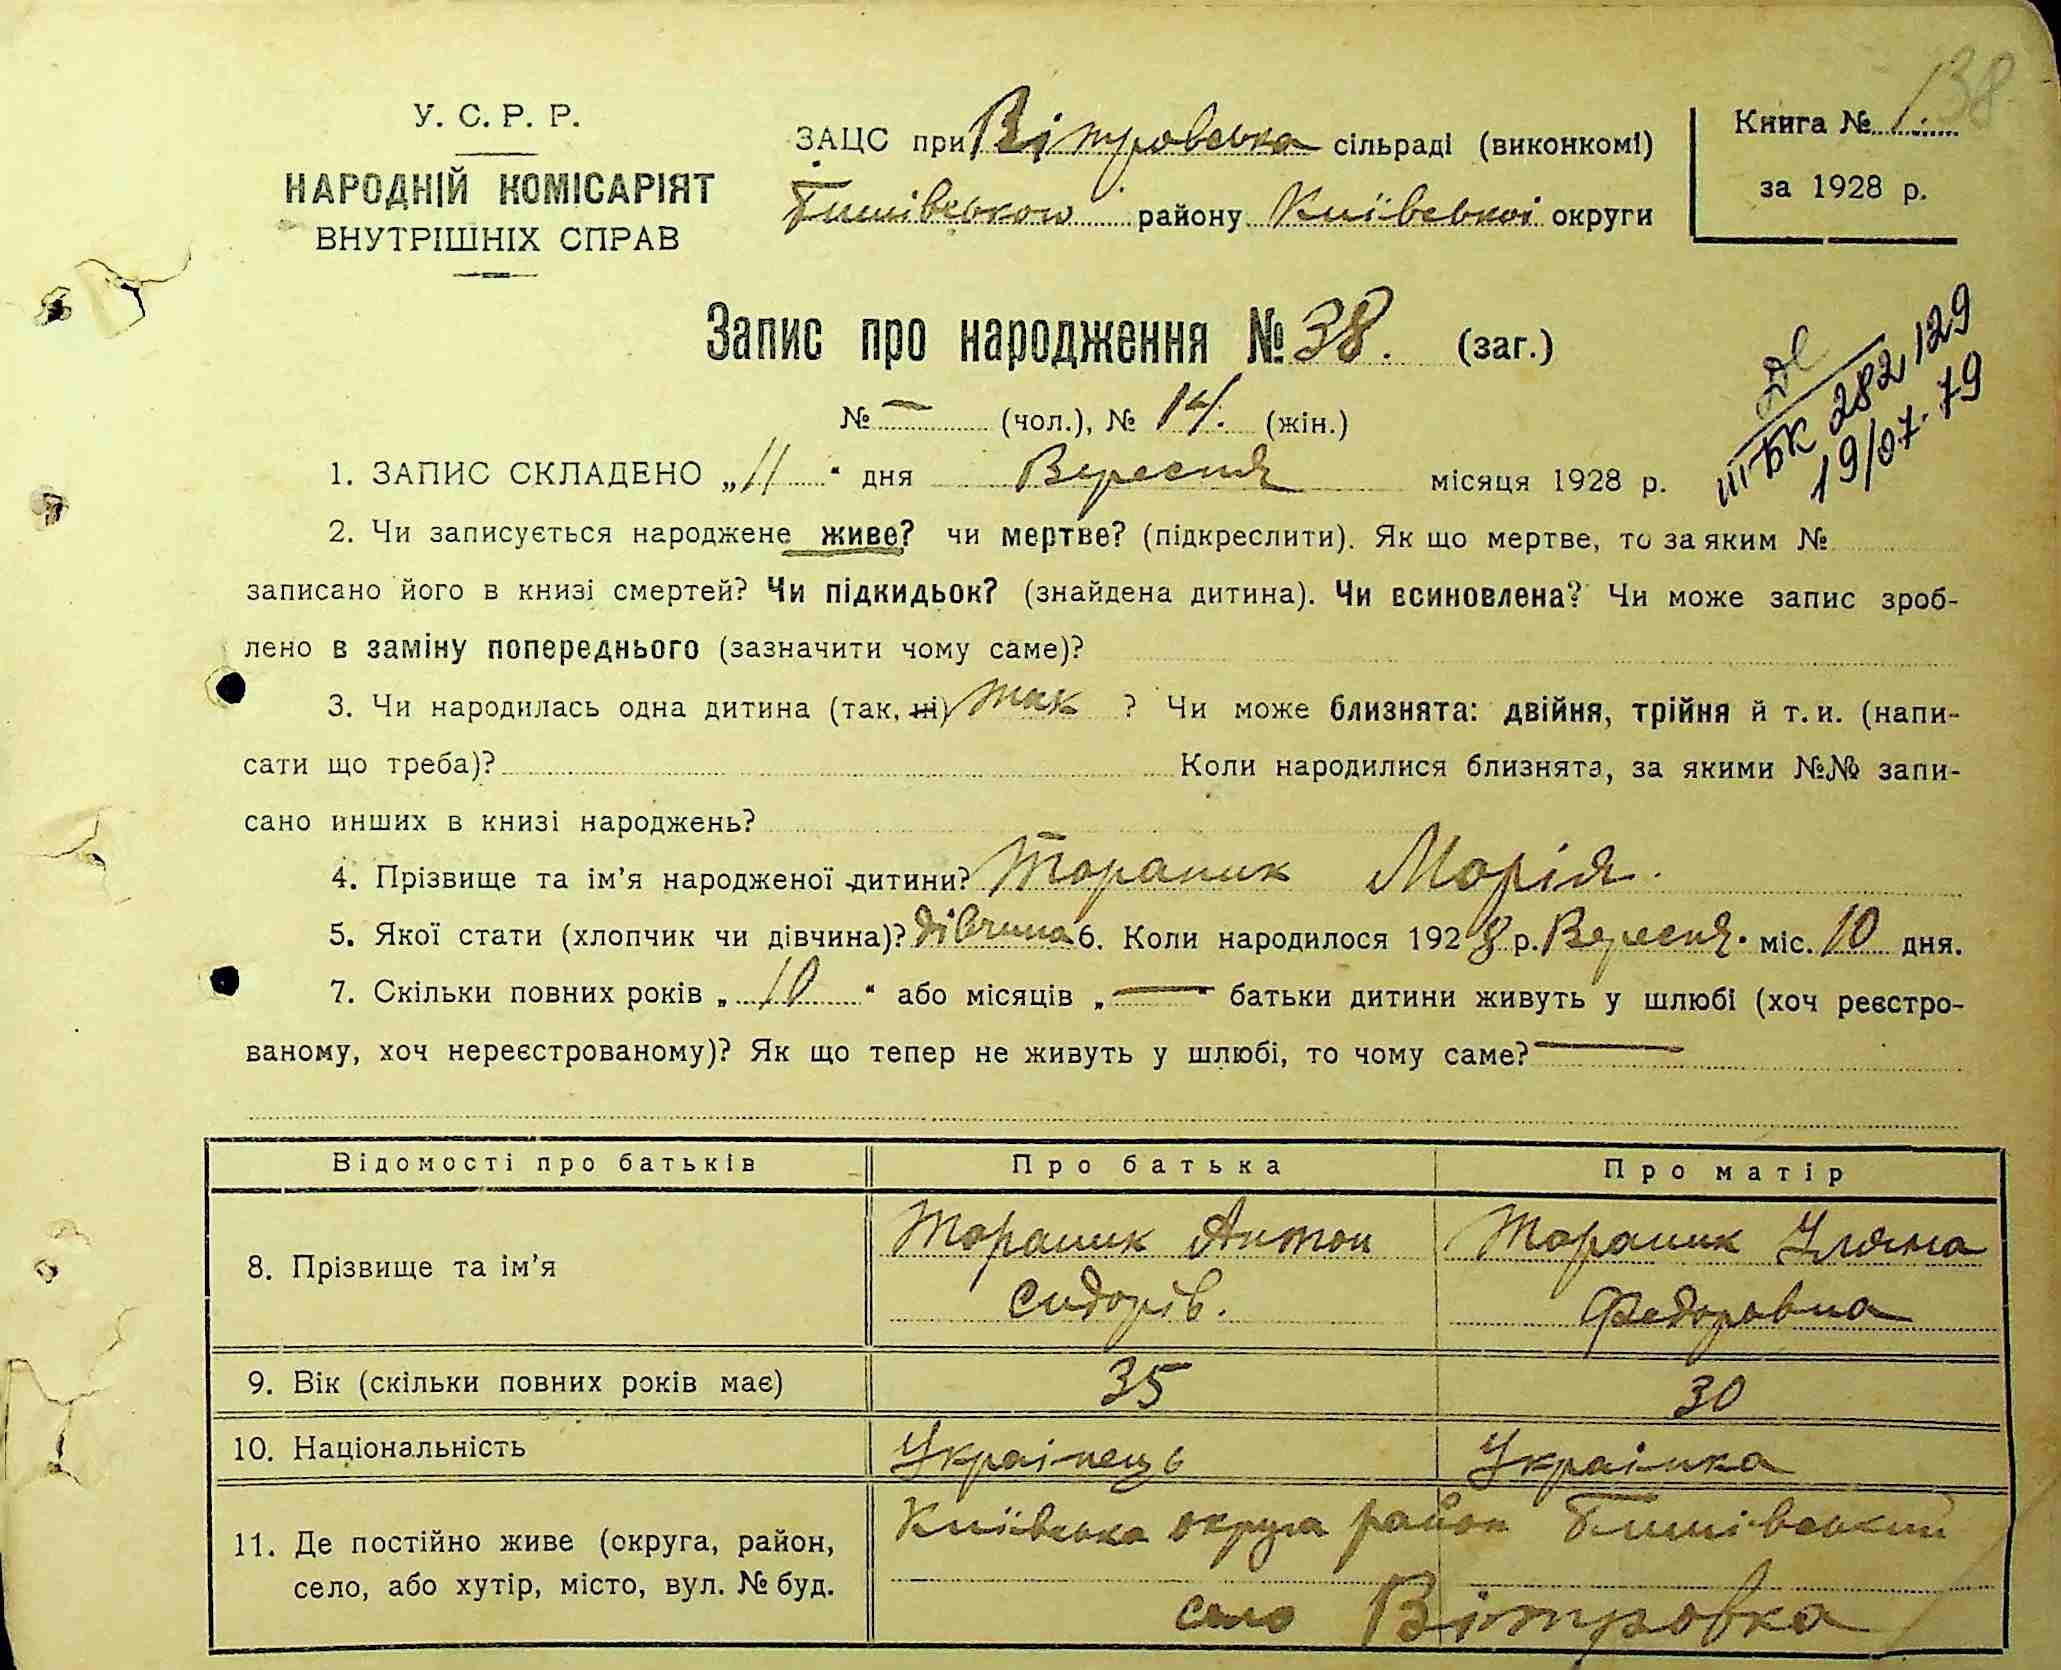 138
У. С. Р. Р.
НАРОДНІЙ КОМІСАРІЯТ
ВНУТРІШНІХ СПРАВ
ЗАЦС при Вітровська сільраді (виконкомі)
Бишівськои району Київської округи
Книга № 1.
за 1928 р.
Запис про народження № 38. (заг.)
№ — (чол.), № 14. (жін.)
ІІІ-БК 282129
19/07.79
1. ЗАПИС СКЛАДЕНО „11“ дня Вересня місяця 1928 р.
2. Чи записується народжене живе? чи мертве? (підкреслити). Як що мертве, то за яким №
записано його в книзі смертей? Чи підкидьок? (знайдена дитина). Чи всиновлена? Чи може запис зроб-
лено в заміну попереднього (зазначити чому саме)?
3. Чи народилась одна дитина (так, ні) так ? Чи може близнята: двійня, трійня й т. и. (напи-
сати що треба)? Коли народилися близнята, за якими №№ запи-
сано инших в книзі народжень?
4. Прізвище та ім’я народженої дитини? Тораник Морія.
5. Якої стати (хлопчик чи дівчина)? дівчина 6. Коли народилося 1928 р. Вересня. міс. 10 дня.
7. Скільки повних років „10“ або місяців „—“ батьки дитини живуть у шлюбі (хоч реєстро-
ваному, хоч нереєстрованому)? Як що тепер не живуть у шлюбі, то чому саме? —
Відомості про батьків Про батька Про матір
8. Прізвище та ім’я Тораник Антон Тораник Уляна
Сидорів. Федоровна
9. Вік (скільки повних років має) 35 30
10. Національність Українець Українка
11. Де постійно живе (округа, район, Київська округа район Бишівський
село, або хутір, місто, вул. № буд. село Вітровка